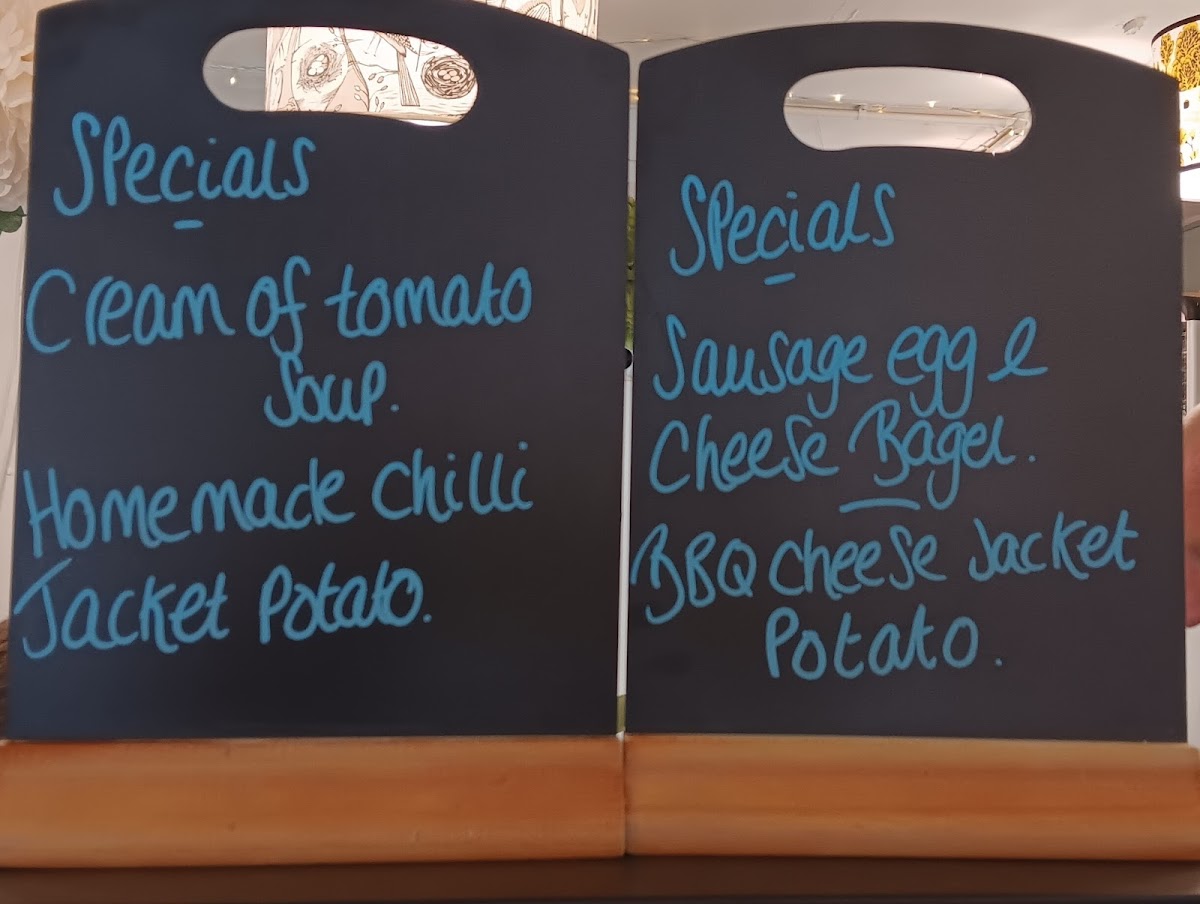 Specials
Cream of tomato
Soup.
Homemade chilli
Jacket Potato.
Specials
Sausage egg &
Cheese Bagel.
BBQ cheese Jacket
Potato.